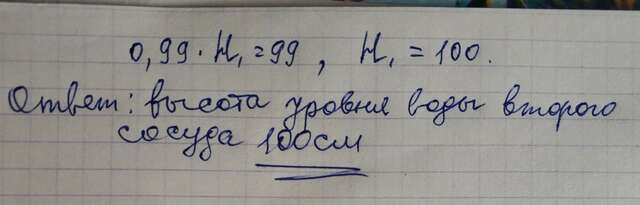 0,99 · H₁ = 99 , H₁ = 100.
Ответ: высота уровня воды второго
сосуда 100см